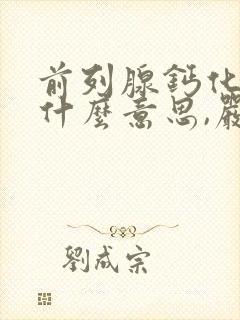 前列腺鈣化
什麼意思,嚴
劉成宗